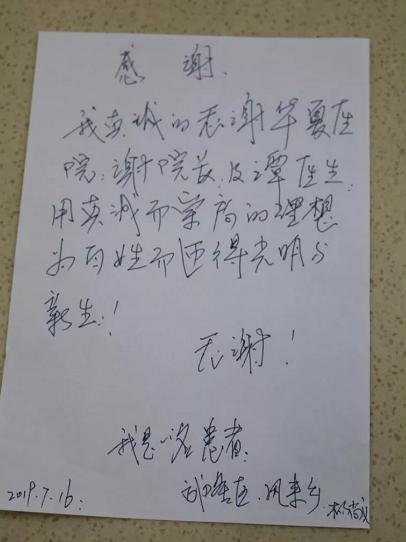 感谢
我真诚的感谢华夏医
院:谢院长:及谭医生:
用真诚而崇高的理想
为百姓而迎得光明与
新生:!
感谢!
我是一名患者:
2019.7.16: